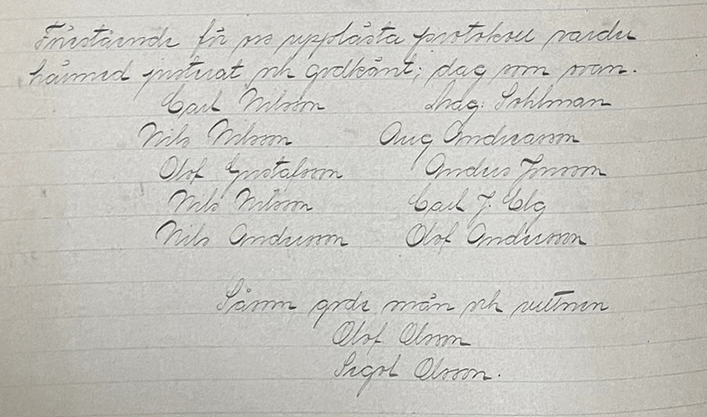 Förestående för oss upplästa protokoll varder
härmed justerat och godkänt; dag som ovan.
Carl Nilsson Aug. Sohlman
Nils Nilsson Aug Andreasson
Olof Gustafsson Anders Jonsson
Nils Nilsson Carl J. Elg
Nils Andersson Olof Andersson
Såsom gode män och vittnen
Olof Olsson
Olsson.